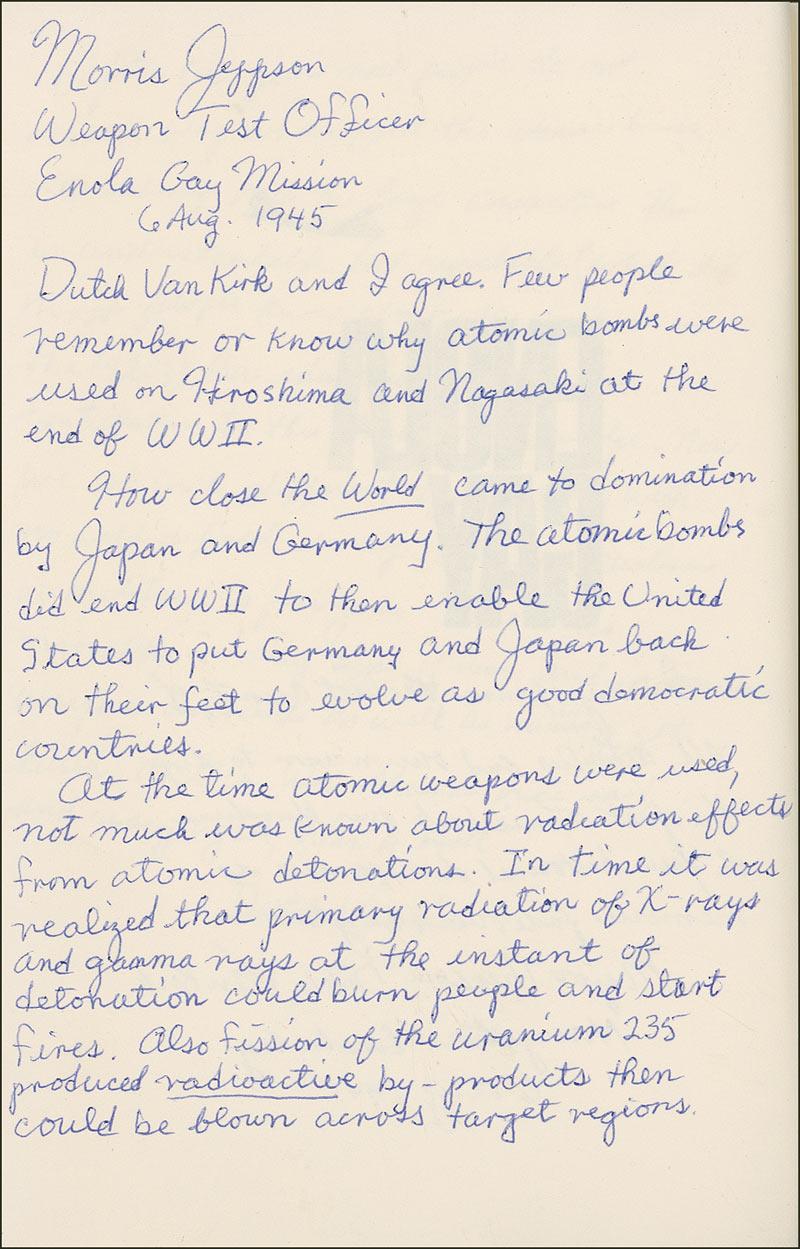 Morris Jeppson
Weapon Test Officer
Enola Gay Mission
6 Aug. 1945
Dutch VanKirk and I agree. Few people
remember or know why atomic bombs were
used on Hiroshima and Nagasaki at the
end of WWII.
How close the World came to domination
by Japan and Germany. The atomic bombs
did end WWII to then enable the United
States to put Germany and Japan back
on their feet to evolve as good democratic
countries.
At the time atomic weapons were used,
not much was known about radiation effects
from atomic detonations. In time it was
realized that primary radiation of X-rays
and gamma rays at the instant of
detonation could burn people and start
fires. Also fission of the uranium 235
produced radioactive by-products then
could be blown across target regions.